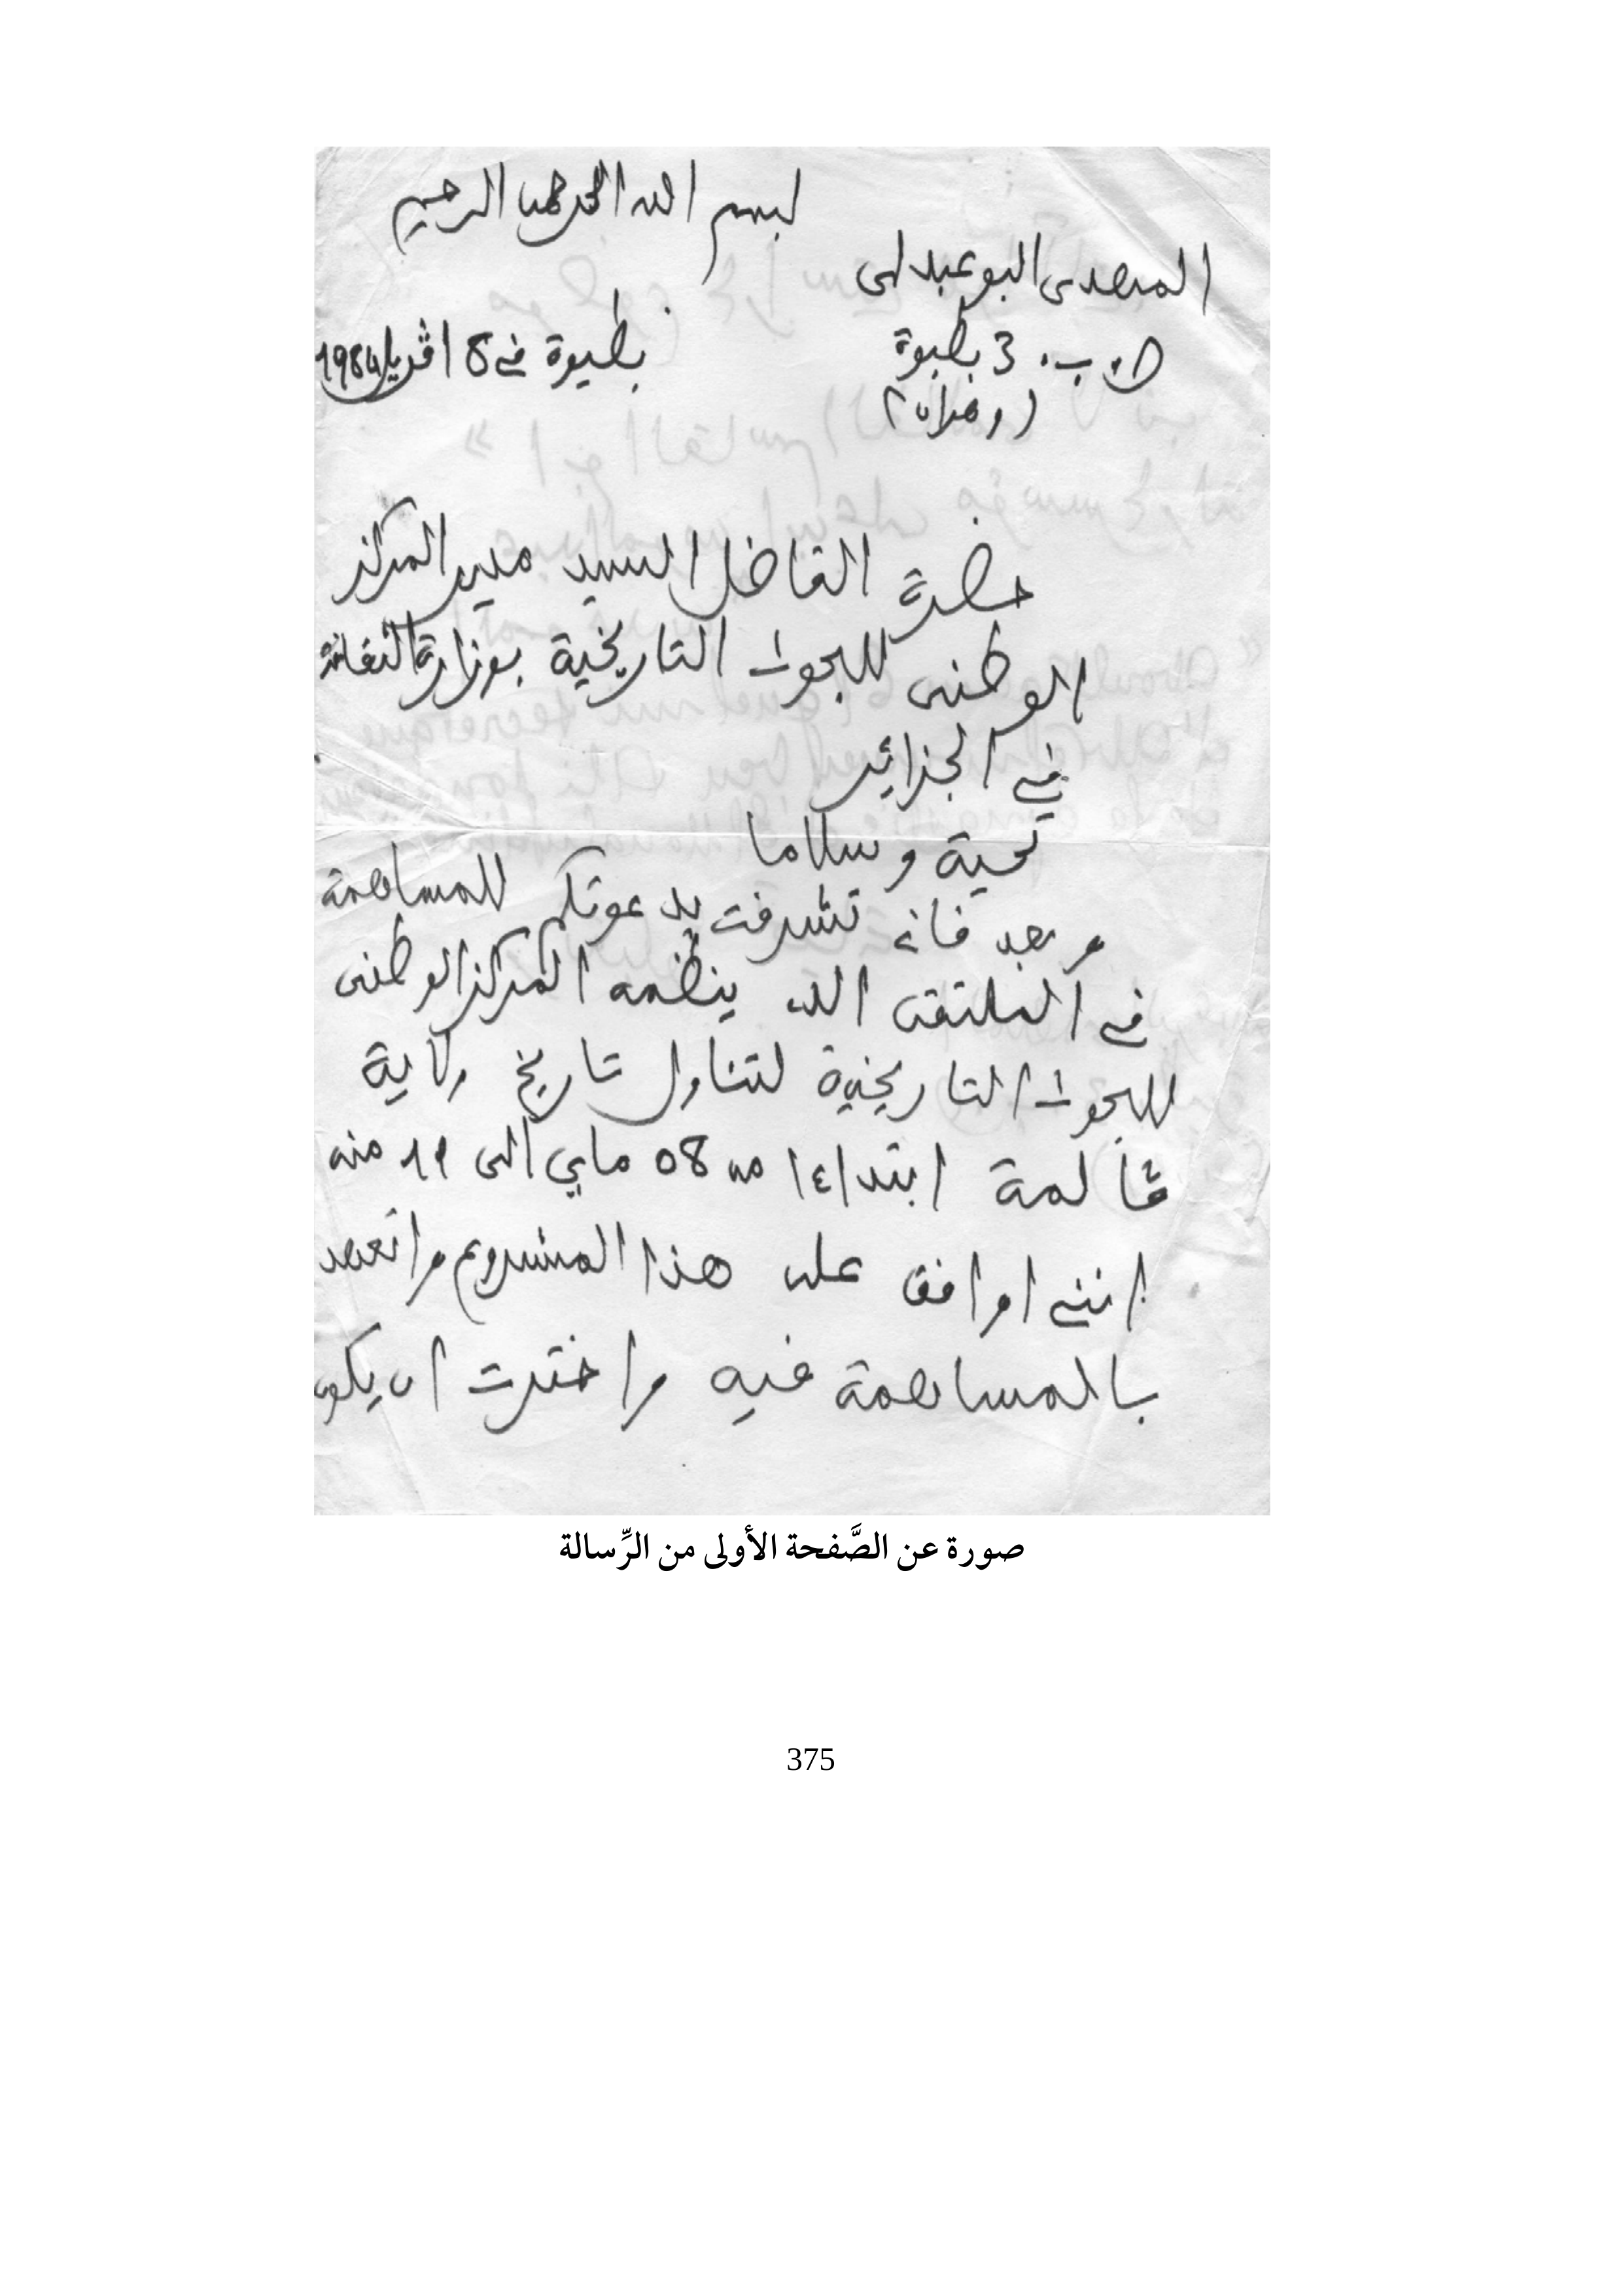 بسم الله الرحمن الرحيم
المهدى البوعبدلى
ص. ب. 3 بطيوة
بطيوة في 8 اڤريل 1984
(وهران)
حضرة الفاضل السيد مدير المركز
الوطنى للبحوث التاريخية بوزارة الثقافة
في الجزائر
تحية وسلاما
وبعد فانى تشرفت بدعوتكم للمساهمة
في الملتقى الذى ينظمه المركز الوطنى
للبحوث التاريخية لتناول تاريخ ولاية
ڤالمة ابتداءا من 08 ماي الى 11 منه
إننى اوافق على هذا المشروع واتعهد
بالمساهمة فيه واخترت ان يكون
صورة عن الصَّفحة الأولى من الرِّسالة
375